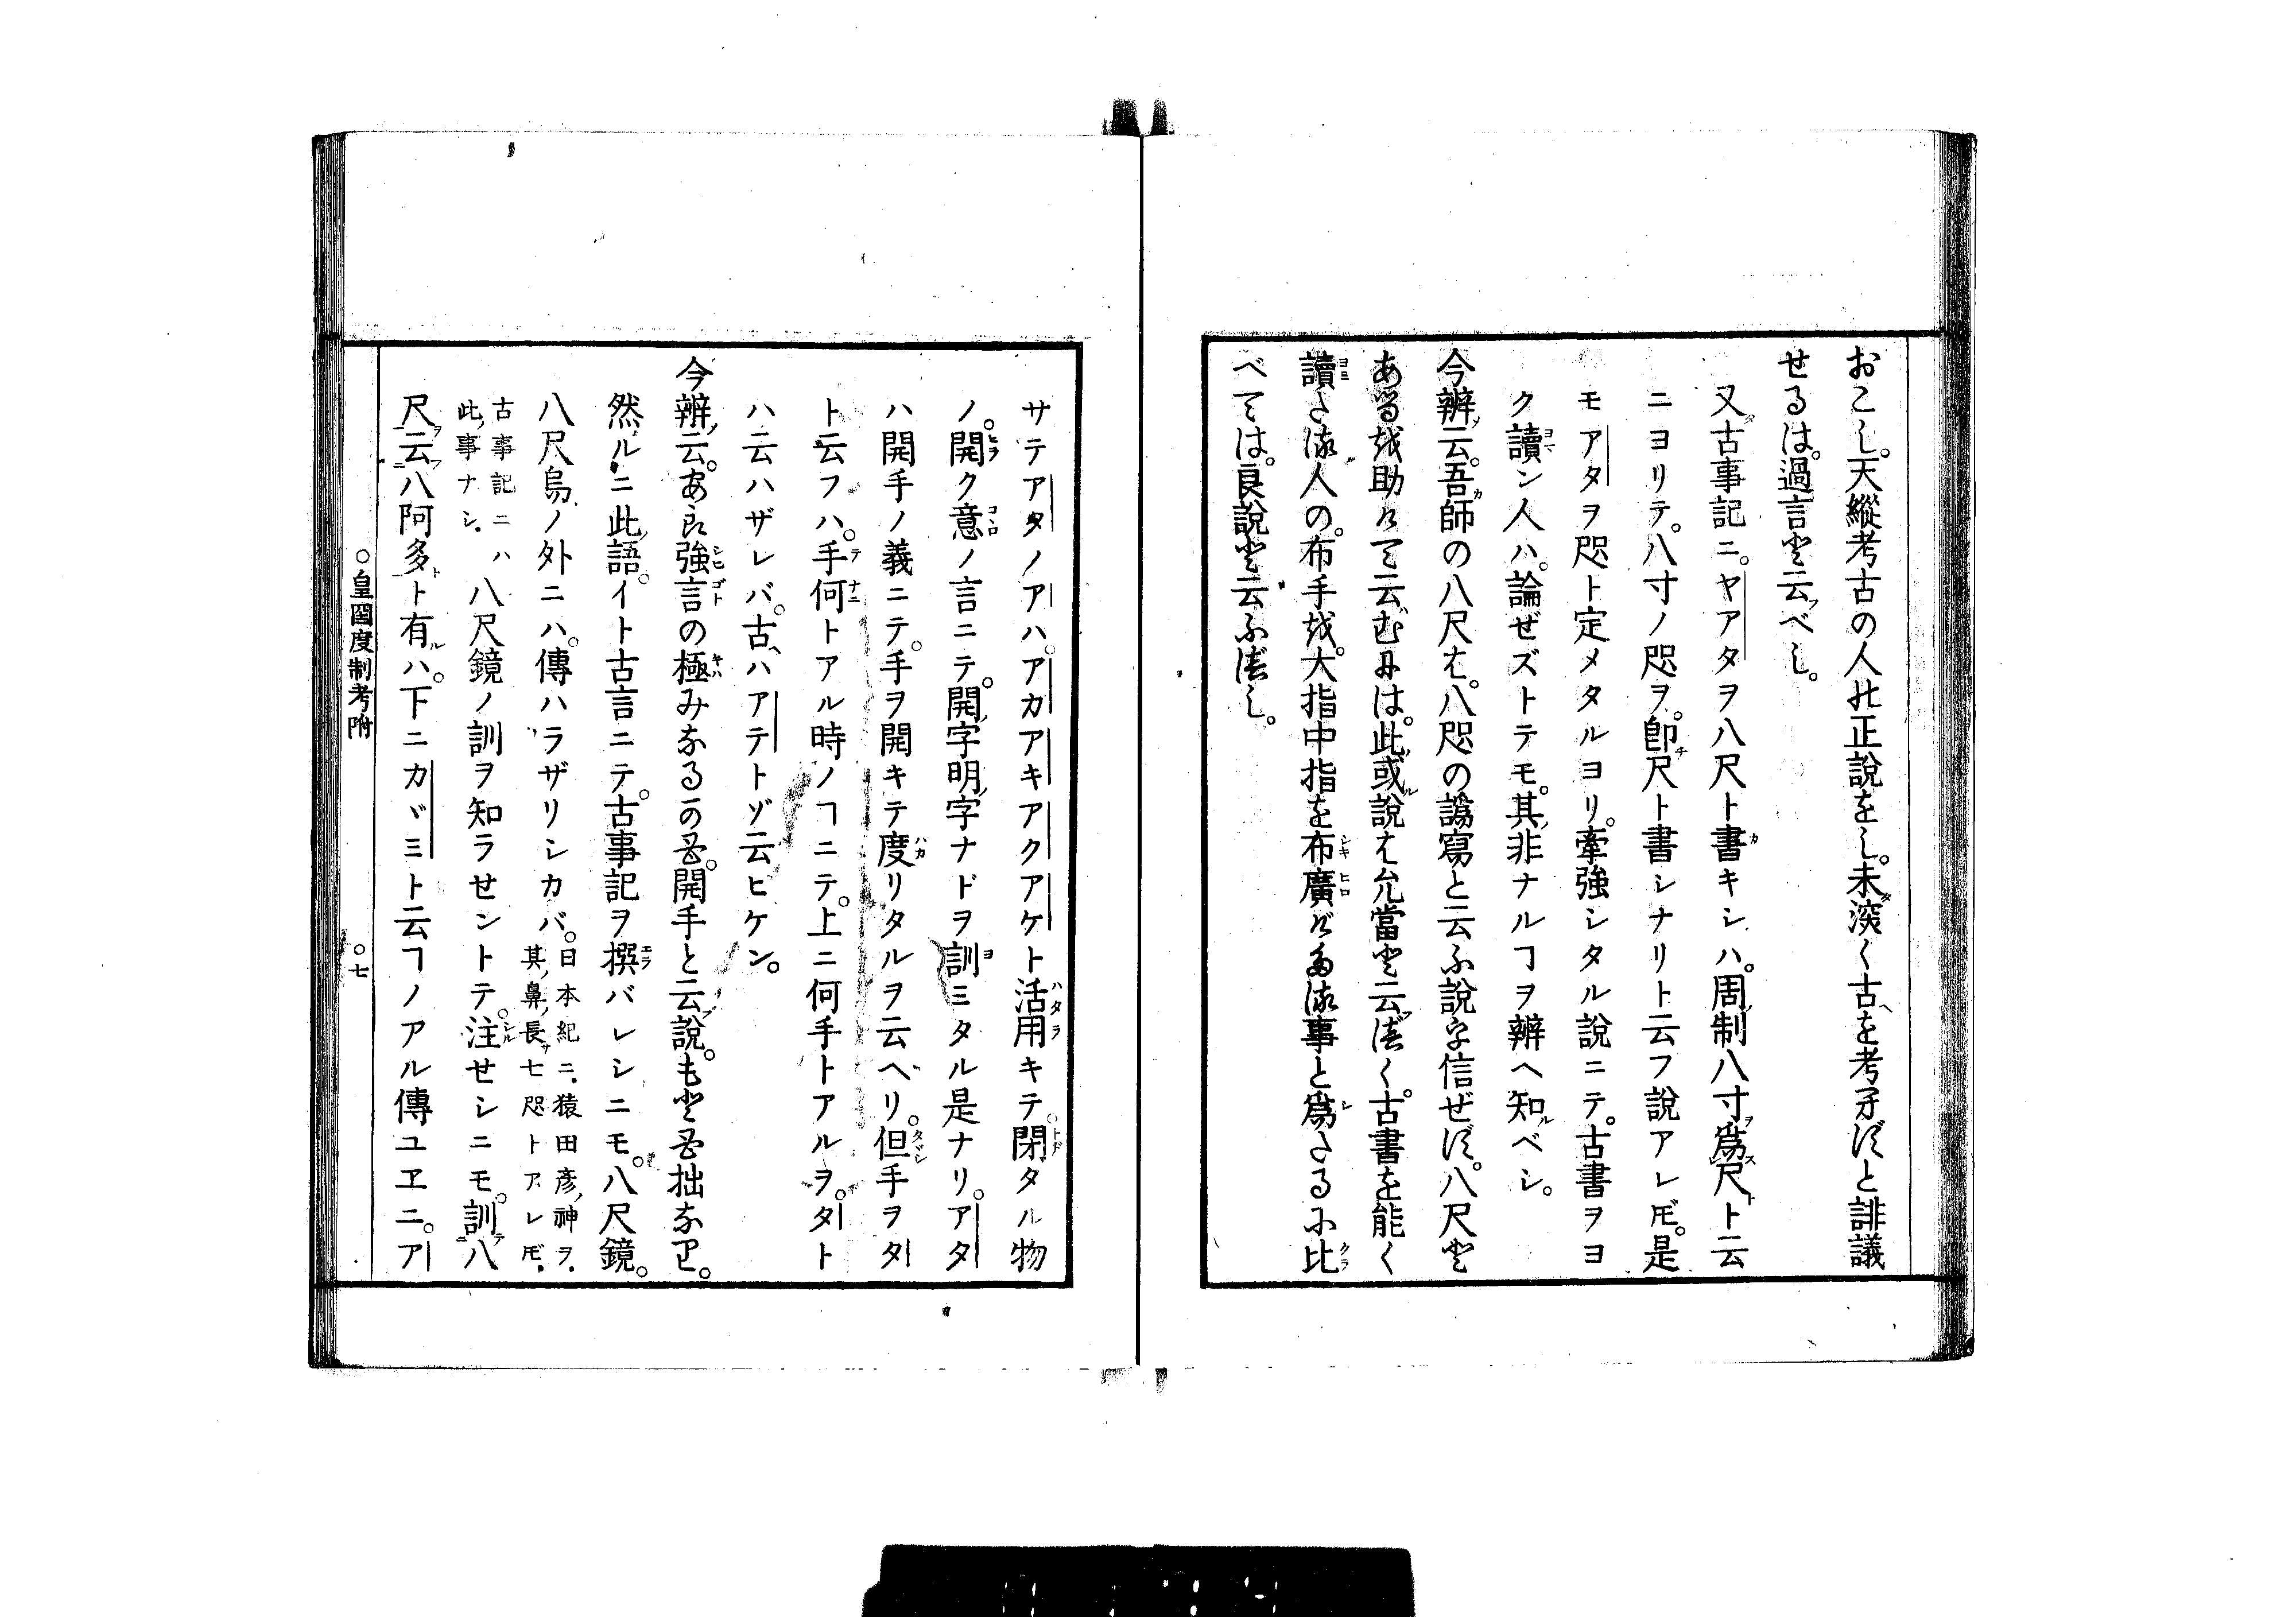 おこし。天縱考古の人此正說をし。未深く古を考みずと誹議
せるは。過言と云べし。
又古事記ニ。ヤアタヲ八尺ト書キシハ。周制八寸爲尺ト云
ニヨリテ。八寸ノ咫ヲ。卽尺ト書シナリト云フ說アレ𪜈。是
モアタヲ咫ト定メタルヨリ。牽強シタル說ニテ。古書ヲヨ
ク讀ン人ハ。論ぜズトテモ。其非ナルヿヲ辨ヘ知ベシ。
今辨云。吾師の八尺は。八咫の譌寫と云ふ說を信ぜず。八尺と
あるを助けて云むには。此或說は允當と云べく。古書を能く
讀たる人の。布手を。大指中指を布廣げたる事と爲たるに比
べては。良說と云ふべし。
サテアタノアハ。アカアキアクアケト活用キテ。閉タル物
ノ。開ク意ノ言ニテ。開字明字ナドヲ訓ミタル是ナリ。アタ
ハ開手ノ義ニテ。手ヲ開キテ度リタルヲ云ヘリ。但手ヲタ
ト云フハ。手何トアル時ノヿニテ。上ニ何手トアルヲ。タト
ハ云ハザレバ。古ハアテトゾ云ヒケン。
今辨云。あら強言の極みなるかも。開手と云說。もとも拙なり。
然ルニ此語。イト古言ニテ。古事記ヲ撰バレシニモ。八尺鏡。
八尺烏ノ外ニハ。傳ハラザリシカバ。日本紀ニ。猿田彦神ヲ。
其鼻長七咫トアレ𪜈。
古事記ニハ
此事ナシ。八尺鏡ノ訓ヲ知ラせントテ。注せシニモ。訓八
尺云八阿多ト有ハ。下ニカヾミト云ヿノアル傳ユヱニ。ア
○皇國度制考附 ○七